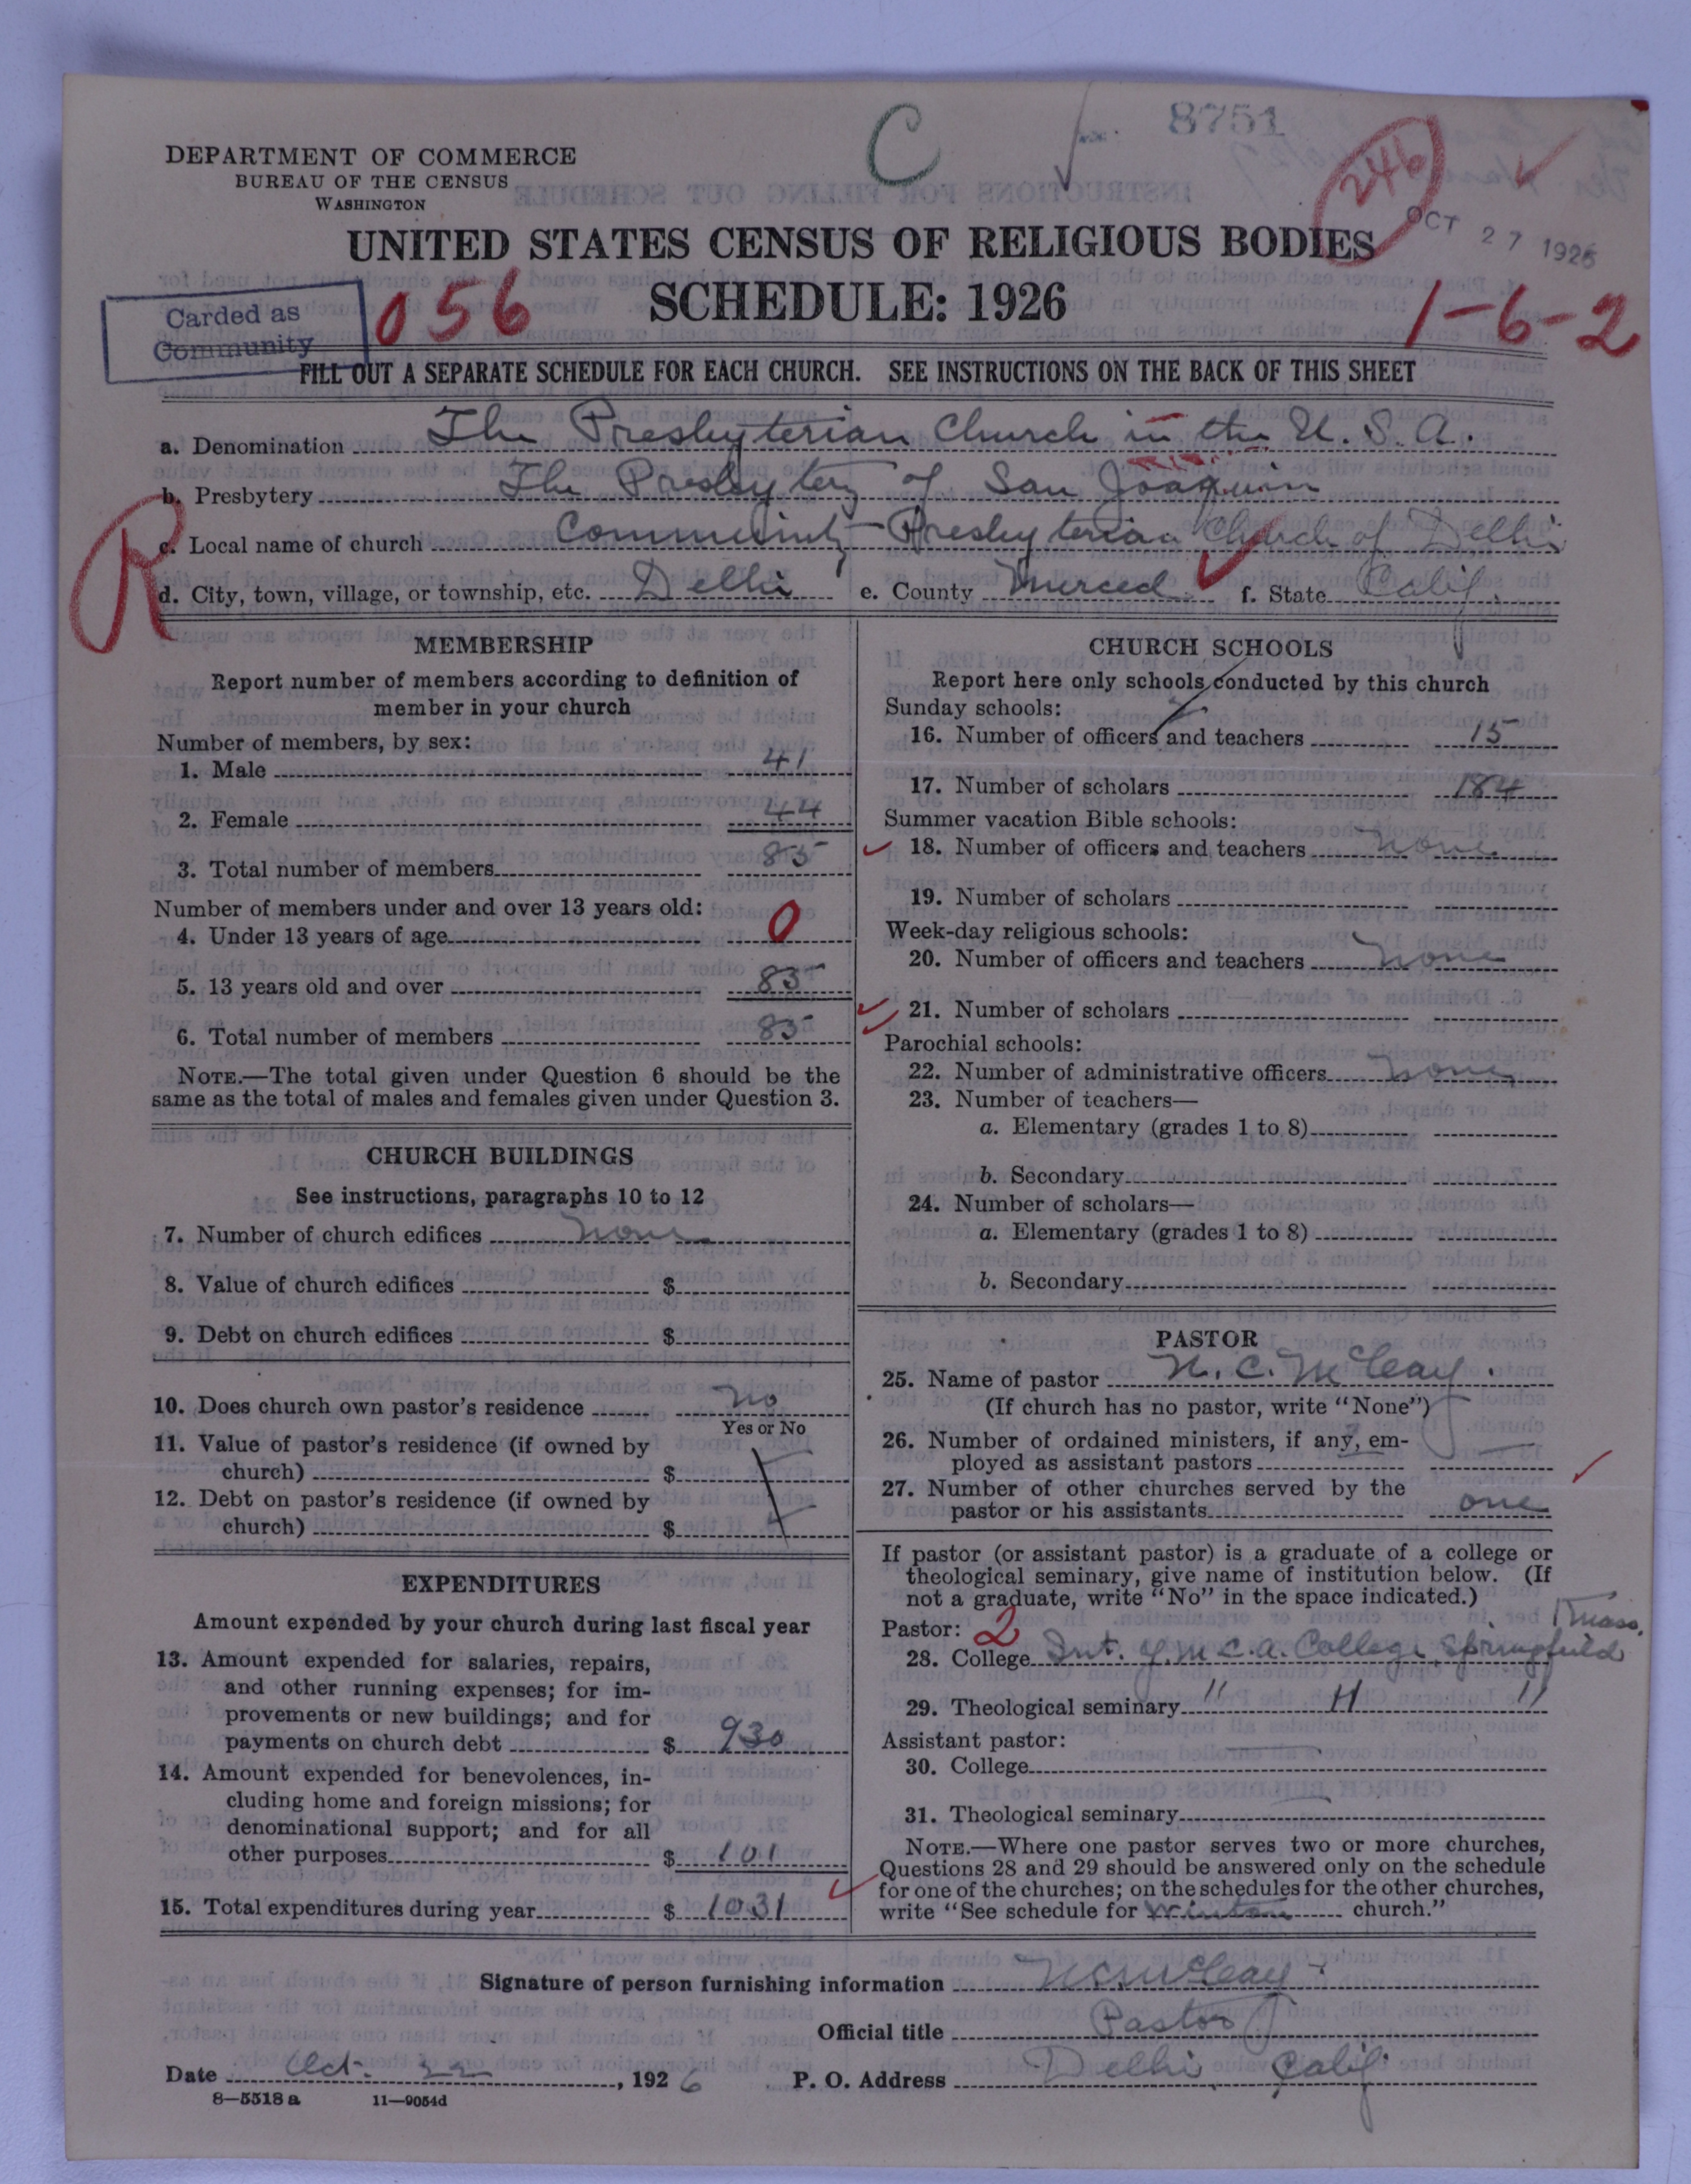 C
8751
246
OCT 27 1926
DEPARTMENT OF COMMERCE
BUREAU OF THE CENSUS
WASHINGTON
UNITED STATES CENSUS OF RELIGIOUS BODIES
SCHEDULE: 1926
Carded as
Community
056
1-6-2
FILL OUT A SEPARATE SCHEDULE FOR EACH CHURCH. SEE INSTRUCTIONS ON THE BACK OF THIS SHEET
R
a. Denomination The Presbyterian Church in the U.S.A.
b. Presbytery The Presbytery of San Joaquin
c. Local name of church Community Presbyterian Church of Delhi
d. City, town, village, or township, etc. Delhi e. County Merced f. State Calif.
MEMBERSHIP
Report number of members according to definition of
member in your church
Number of members, by sex:
1. Male 41
2. Female 44
3. Total number of members 85
Number of members under and over 13 years old:
4. Under 13 years of age 0
5. 13 years old and over 85
6. Total number of members 85
NOTE.—The total given under Question 6 should be the
same as the total of males and females given under Question 3.
CHURCH BUILDINGS
See instructions, paragraphs 10 to 12
7. Number of church edifices none
8. Value of church edifices $
9. Debt on church edifices $
10. Does church own pastor's residence no
Yes or No
11. Value of pastor's residence (if owned by
church) $
12. Debt on pastor's residence (if owned by
church) $
EXPENDITURES
Amount expended by your church during last fiscal year
13. Amount expended for salaries, repairs,
and other running expenses; for im-
provements or new buildings; and for
payments on church debt $ 930
14. Amount expended for benevolences, in-
cluding home and foreign missions; for
denominational support; and for all
other purposes $ 101
15. Total expenditures during year $ 1031
CHURCH SCHOOLS
Report here only schools conducted by this church
Sunday schools:
16. Number of officers and teachers 15
17. Number of scholars 184
Summer vacation Bible schools:
18. Number of officers and teachers none
19. Number of scholars
Week-day religious schools:
20. Number of officers and teachers none
21. Number of scholars
Parochial schools:
22. Number of administrative officers none
23. Number of teachers—
a. Elementary (grades 1 to 8)
b. Secondary
24. Number of scholars—
a. Elementary (grades 1 to 8)
b. Secondary
PASTOR
25. Name of pastor N. C. McCleay.
(If church has no pastor, write "None")
26. Number of ordained ministers, if any, em-
ployed as assistant pastors —
27. Number of other churches served by the
pastor or his assistants one
If pastor (or assistant pastor) is a graduate of a college or
theological seminary, give name of institution below. (If
not a graduate, write "No" in the space indicated.)
Pastor: 2
28. College Int. Y.M.C.A. College, Springfield Mass.
29. Theological seminary " " "
Assistant pastor:
30. College
31. Theological seminary
NOTE.—Where one pastor serves two or more churches,
Questions 28 and 29 should be answered only on the schedule
for one of the churches; on the schedules for the other churches,
write "See schedule for Winton church."
Signature of person furnishing information N C McCleay
Official title Pastor
Date Oct. 22, 1926 P. O. Address Delhi, Calif.
8—5518 a 11—9054d